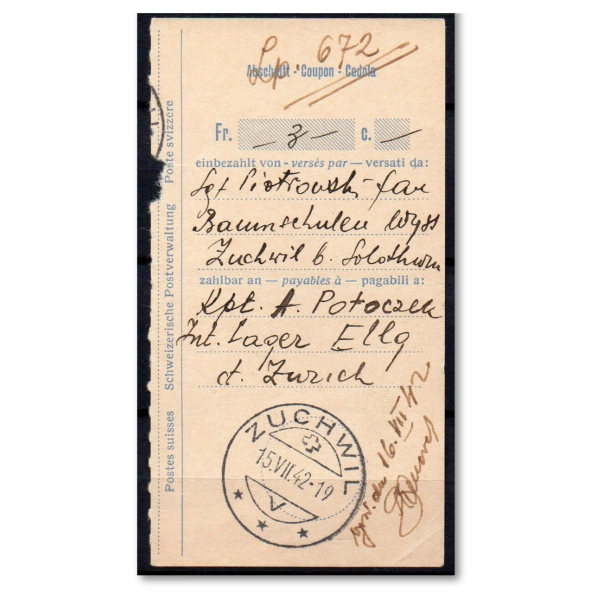 Lp. 672
Abschnitt - Coupon - Cedola
Fr. —3— c. —
einbezahlt von - versés par — versati da:
Sgt Piotrowski
Baumschulen Wyss
Zuchwil b. Solothurn
zahlbar an — payables à — pagabili a:
Kpt. A. Potoczek
Int. Lager Ellg
d. Zurich
ZUCHWIL
15.VII.42-19
V
16.VII 42
Postes suisses Schweizerische Postverwaltung Poste svizzere